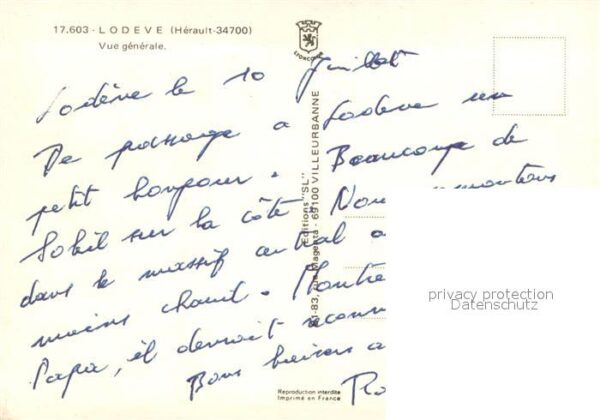 17.603 - LODEVE (Hérault-34700)
Vue générale.
LYONCOLOR
Editions "SL"
81-83, rue Magenta - 69100 VILLEURBANNE
Lodève le 10 Juillet
De passage a Lodeve un
petit bonjour. Beaucoup de
Soleil sur la côte. Nous remontons
dans le massif central a
moins chaud. Montre
Papa, il devrait reconn
Bons baisers a
Ro
privacy protection
Datenschutz
Reproduction interdite
Imprimé en France